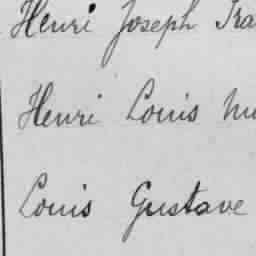 Henri Joseph
Henri Louis
Louis Gustave